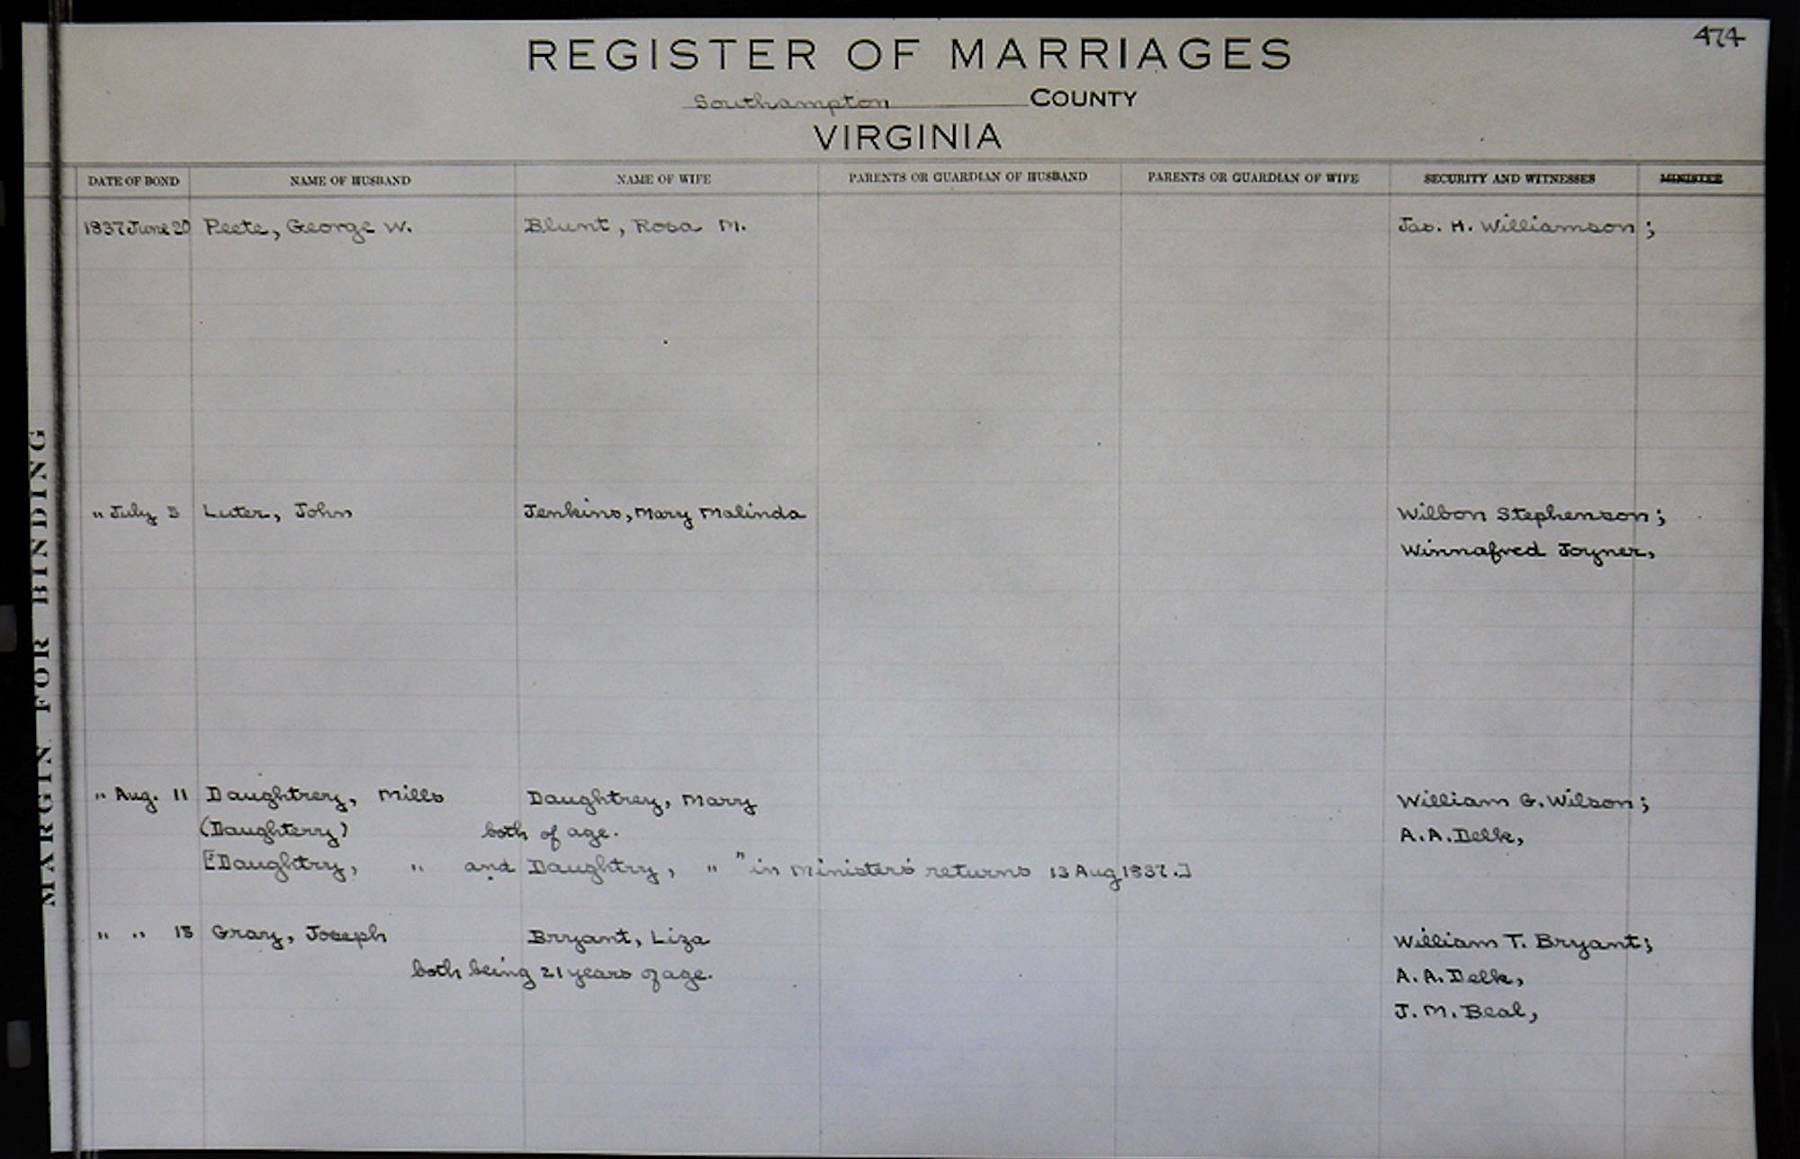 474
REGISTER OF MARRIAGES
Southampton COUNTY
VIRGINIA
DATE OF BOND NAME OF HUSBAND NAME OF WIFE PARENTS OR GUARDIAN OF HUSBAND PARENTS OR GUARDIAN OF WIFE SECURITY AND WITNESSES MINISTER
1837 June 20 Peete, George W. Blunt, Rosa M. Jas. H. Williamson;
" July 5 Luter, John Jenkins, Mary Malinda Wilbon Stephenson;
Winnafred Joyner,
" Aug. 11 Daughtrey, Mills Daughtrey, Mary William G. Wilson;
(Daughterry) both of age. A.A. Delk,
[Daughtry, " and Daughtry, " " in Minister's returns 13 Aug 1837.]
" " 18 Gray, Joseph Bryant, Liza William T. Bryant;
both being 21 years of age. A.A. Delk,
J.M. Beal,
MARGIN FOR BINDING